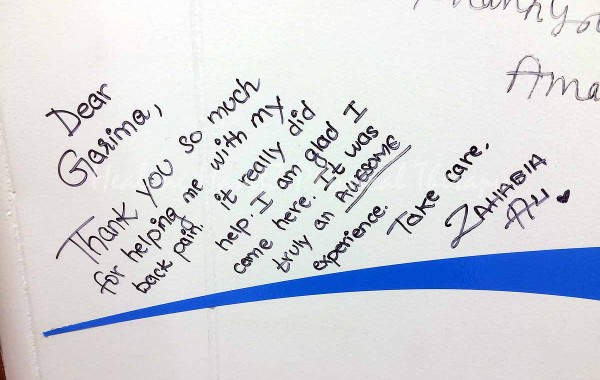 Dear
Garima,
Thank you so much
for helping me with my
back pain. it really did
help. I am glad I
came here. It was
truly an AWESOME
experience.
Take care.
ZAHABIA
Ali
Ama